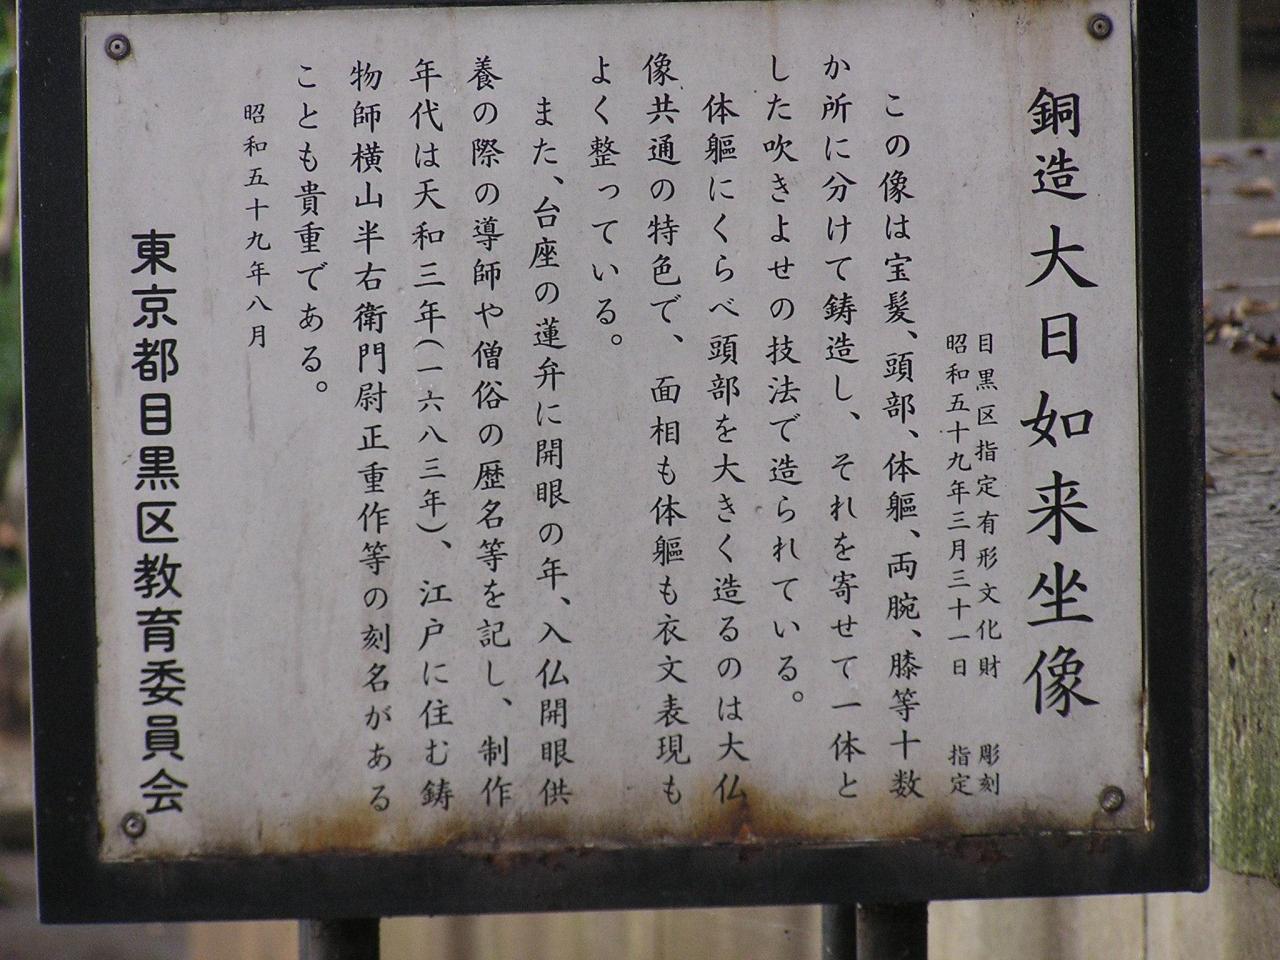 銅造大日如来坐像
目黒区指定有形文化財　彫刻
昭和五十九年三月三十一日　指定
この像は宝髪、頭部、体軀、両腕、膝等十数
か所に分けて鋳造し、それを寄せて一体と
した吹きよせの技法で造られている。
体軀にくらべ頭部を大きく造るのは大仏
像共通の特色で、面相も体軀も衣文表現も
よく整っている。
また、台座の蓮弁に開眼の年、入仏開眼供
養の際の導師や僧俗の歴名等を記し、制作
年代は天和三年(一六八三年)、江戸に住む鋳
物師横山半右衛門尉正重作等の刻名がある
ことも貴重である。
昭和五十九年八月
東京都目黒区教育委員会